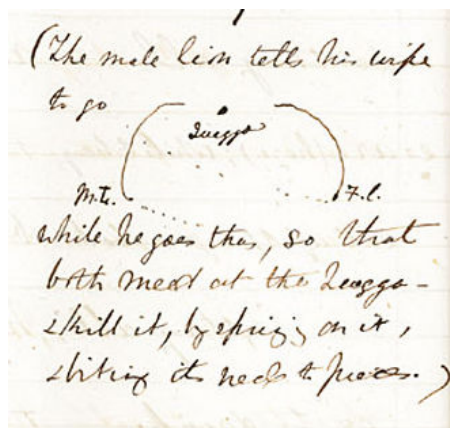 (The male lion tells his wife
to go
Quagga
M.L. F.L.
while he goes thus, so that
both meet at the Quagga -
& kill it, by springing on it,
& biting its neck to pieces.)